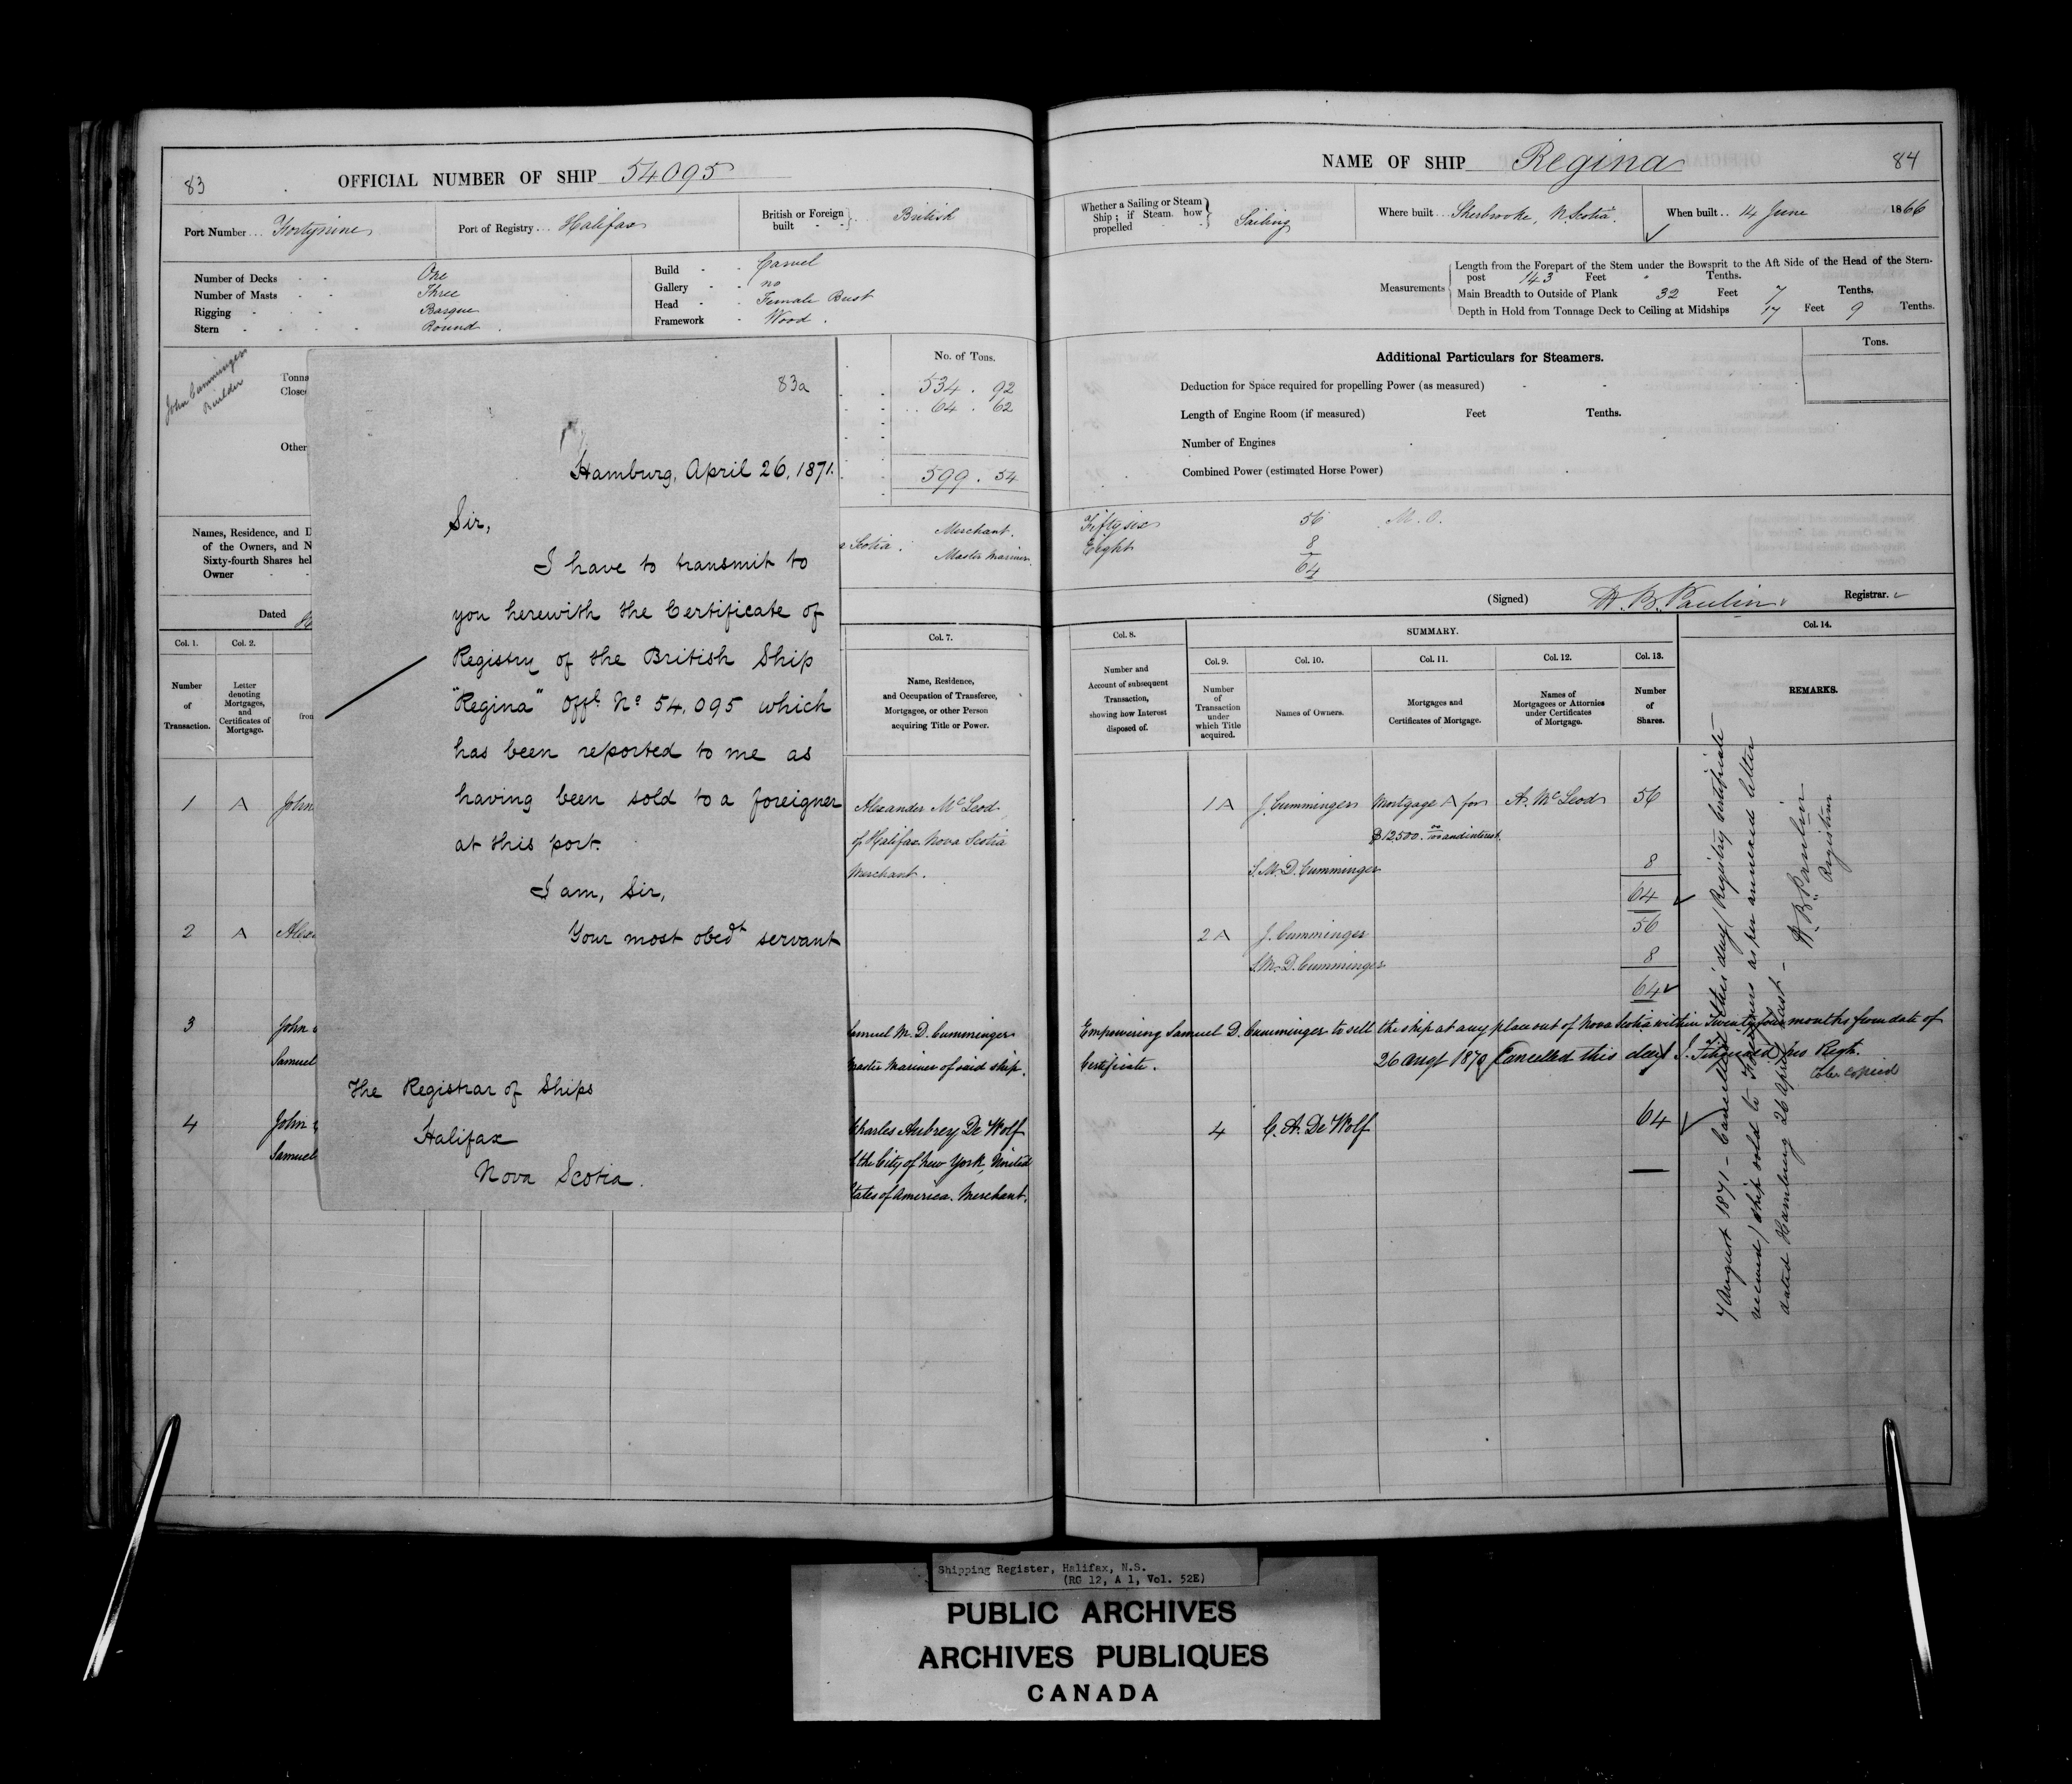 83
OFFICIAL NUMBER OF SHIP 54095
Port Number... Fortynine
Port of Registry... Halifax
British or Foreign built - - British
Number of Decks - - One
Number of Masts - - Three
Rigging - - - Barque
Stern - - - - Round
Build - - Carvel
Gallery - - no
Head - - Female Bust
Framework - Wood.
John Cumminger
Builder
Tonna
Close
Other
No. of Tons.
534 . 92
64 . 62
599 . 54
Names, Residence, and D
of the Owners, and N
Sixty-fourth Shares hel
Owner - -
Scotia. Merchant.
Master Mariner.
Dated
Col. 1. Col. 2. Col. 7.
Number of Transaction.
Letter denoting Mortgages, and Certificates of Mortgage.
from
Name, Residence, and Occupation of Transferee, Mortgagee, or other Person acquiring Title or Power.
1 A John
Alexander McLeod
of Halifax Nova Scotia
Merchant.
2 A Alex
3 John
Samuel
Samuel M. D. Cumminger
Master Mariner of said ship.
4 John
Samuel
Charles Aubrey De Wolf
the City of New York, United
States of America. Merchant.
83a
Hamburg, April 26, 1871.
Sir,
I have to transmit to
you herewith the Certificate of
Registry of the British Ship
"Regina" Offl. No 54,095 which
has been reported to me as
having been sold to a foreigner
at this port.
I am, Sir,
Your most obedt servant
The Registrar of Ships
Halifax
Nova Scotia.
NAME OF SHIP Regina
84
Whether a Sailing or Steam Ship; if Steam how propelled - - Sailing
Where built... Sherbrooke, N. Scotia.
When built.. 14 June 1866
Measurements
Length from the Forepart of the Stem under the Bowsprit to the Aft Side of the Head of the Stern-
post 143 Feet " Tenths.
Main Breadth to Outside of Plank 32 Feet 7 Tenths.
Depth in Hold from Tonnage Deck to Ceiling at Midships 17 Feet 9 Tenths.
Additional Particulars for Steamers.
Tons.
Deduction for Space required for propelling Power (as measured) - -
Length of Engine Room (if measured) Feet Tenths.
Number of Engines
Combined Power (estimated Horse Power)
Fifty six 56 M. O.
Eight 8
64
(Signed) H. B. Paulin Registrar.
Col. 8. SUMMARY. Col. 14.
Col. 9. Col. 10. Col. 11. Col. 12. Col. 13.
Number and Account of subsequent Transaction, showing how Interest disposed of.
Number of Transaction under which Title acquired.
Names of Owners.
Mortgages and Certificates of Mortgage.
Names of Mortgagees or Attornies under Certificates of Mortgage.
Number of Shares.
REMARKS.
1 A J. Cumminger Mortgage A for A. McLeod 56
$12500. 00/100 and interest.
S. M. D. Cumminger 8
64
2 A J. Cumminger 56
S. M. D. Cumminger 8
64
Empowering Samuel D. Cumminger to sell the ship at any place out of Nova Scotia within Twenty four months from date of
Certificate. 26 augt 1870 Cancelled this day pro Regr.
4 C. A. De Wolf 64
7 August 1871 - Cancelled this day (Registry Certificate
received) ship sold to Foreigners as per annexed letter
dated Hamburg 26 April last -
H. B. Paulin
Registrar
Shipping Register, Halifax, N.S.
(RG 12, A 1, Vol. 52E)
PUBLIC ARCHIVES
ARCHIVES PUBLIQUES
CANADA